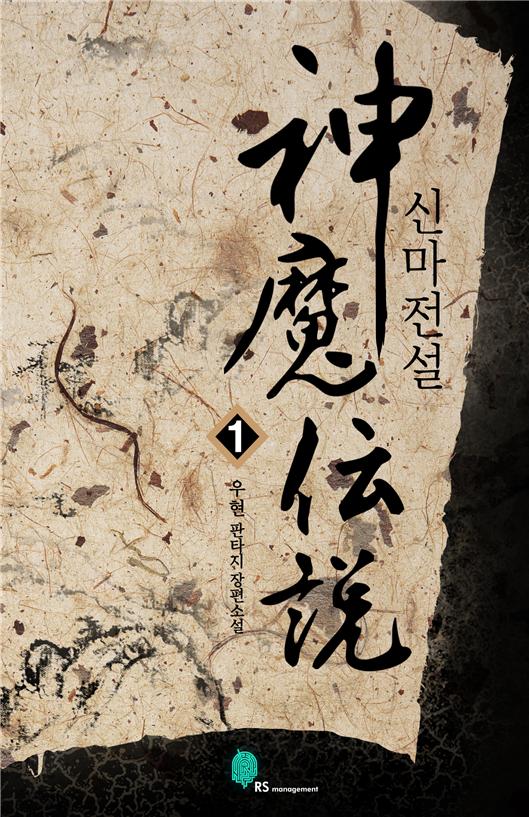 神魔伝説
신마전설
1
우현 판타지 장편소설
RS management